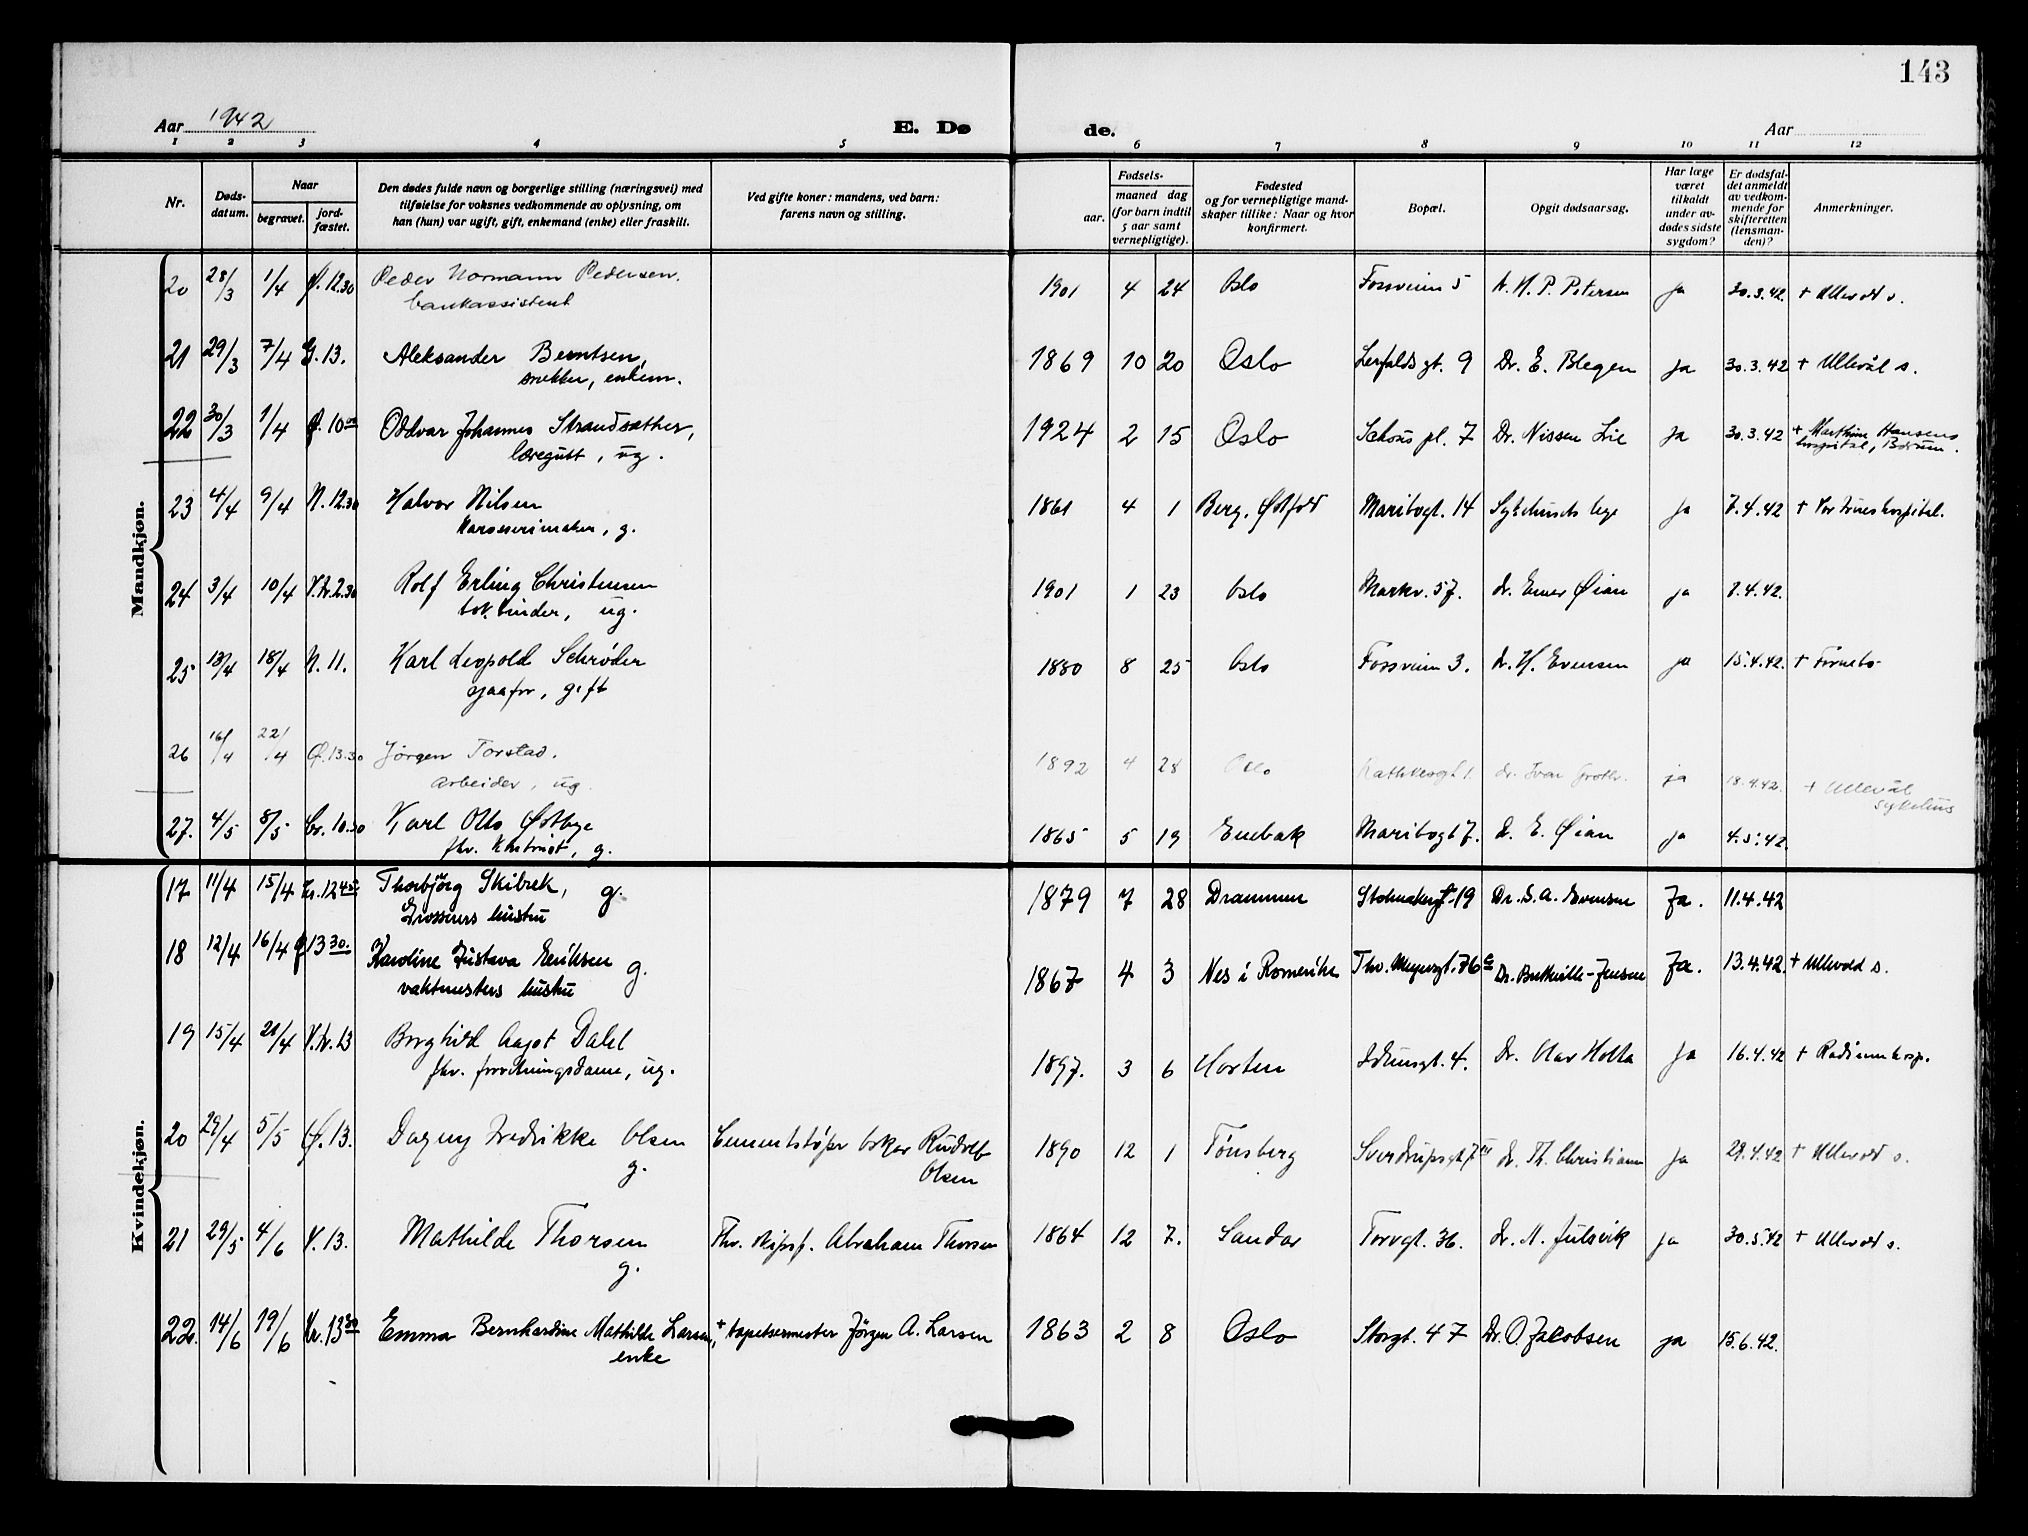 143
Aar 1942
E. Dø de.
Aar
1 2 3 4 5 6 7 8 9 10 11 12
Nr.
Døds-
datum.
Naar
begravet.
jord-
fæstet.
Den dødes fulde navn og borgerlige stilling (næringsvei) med
tilføielse for voksnes vedkommende av oplysning, om
han (hun) var ugift, gift, enkemand (enke) eller fraskilt.
Ved gifte koner: mandens, ved barn:
farens navn og stilling.
Fødsels-
aar.
maaned dag
(for barn indtil
5 aar samt
vernepligtige).
Fødested
og for vernepligtige mand-
skaper tillike: Naar og hvor
konfirmert.
Bopæl.
Opgit dødsaarsag.
Har læge
været
tilkaldt
under av-
dødes sidste
sygdom?
Er dødsfal-
det anmeldt
av vedkom-
mende for
skifteretten
(lensman-
den)?
Anmerkninger.
Mandkjøn.
20 28/3 1/4 Ø. 12.30 Peder Normann Pedersen. 1901 4 24 Oslo Fossveien 5 H. P. Petersen ja 30.3.42 + Ullevål s.
bankassistent
21 29/3 7/4 G. 13. Aleksander Berntsen, 1869 10 20 Oslo Lerfaldsgt. 9 Dr. E. Blegen ja 30.3.42 + Ullevål s.
snekker, enkem.
22 30/3 1/4 Ø. 10 00 Oddvar Johannes Strandsæther, 1924 2 15 Oslo Schous pl. 7 Dr. Nissen Lie ja 30.3.42 + Marthine Hansens
hospital, Bærum.
læregutt, ug.
23 4/4 9/4 N. 12.30 Halvor Nilsen 1861 4 1 Berg, Østfold Maribogt. 14 Sykehusets lege ja 7.4.42 + Vor Frues hospital.
Karosserimaker, g.
24 3/4 10/4 V.Kr. 2.30 Rolf Erling Christensen 1901 1 23 Oslo Markv. 57. dr. Einer Øian ja 7.4.42.
bokbinder, ug.
25 13/4 18/4 N. 11. Karl Leopold Schrøder 1880 8 25 Oslo Fossveien 3. dr. H. Evensen ja 15.4.42. + Fornebo
sjaafør, gift
26 16/4 22/4 Ø. 13.30 Jørgen Torstad. 1892 4 28 Oslo Rathkesgt 1. dr. Ivar Groth. ja 18.4.42. + Ullevål
sykehus
arbeider, ug.
27. 4/5 8/5 Cr. 10.30 Karl Otto Østbye 1865 5 19 Enebak Maribogt 7. Dr. E. Øian ja 4.5.42.
fhv. g.
Kvindekjøn.
17 11/4 15/4 Kr. 12 45. Thorbjörg Skibrek, g. 1879 7 28 Drammen 19 Dr. S. A. Evensen Ja. 11.4.42
Grosserers hustru
18 12/4 16/4 Ø 13 30. Karoline Gustava Eriksen g. 1867 4 3 Nes i Romerike Thv. Meyersgt. 76 c Jensen Ja. 13.4.42. + Ullevold s.
vaktmesters hustru
19 15/4 21/4 V.Kr. 13 Borghild Aagot Dahl 1897. 3 6 Horten Idunsgt. 4. Dr. Olav Holta ja 16.4.42 + Radiumhosp.
fhv. forretningsdame, ug.
20 29/4 5/5 Ø. 13. Dagny Fredrikke Olsen Cementstøper Oskar Rudolf 1890 12 1 Tønsberg Sverdrupsgt 7 III dr. Th. Christiansen ja 29.4.42 + Ullevold s.
g. Olsen
21 29/5 4/6 V. 13. Mathilde Thorsen Fhv. skipsf. Abraham Thorsen 1864 12 7. Sandar Torvgt. 36. dr. N. Julsvik ja 30.5.42 + Ullevold s.
g.
22. 14/6 19/6 Kr. 13 30 Emma Bernhardine Mathilde Larsen, + tapetsermester Jörgen A. Larsen 1863 2 8 Oslo Storgt. 47 Dr. O. Jacobsen ja 15.6.42.
enke